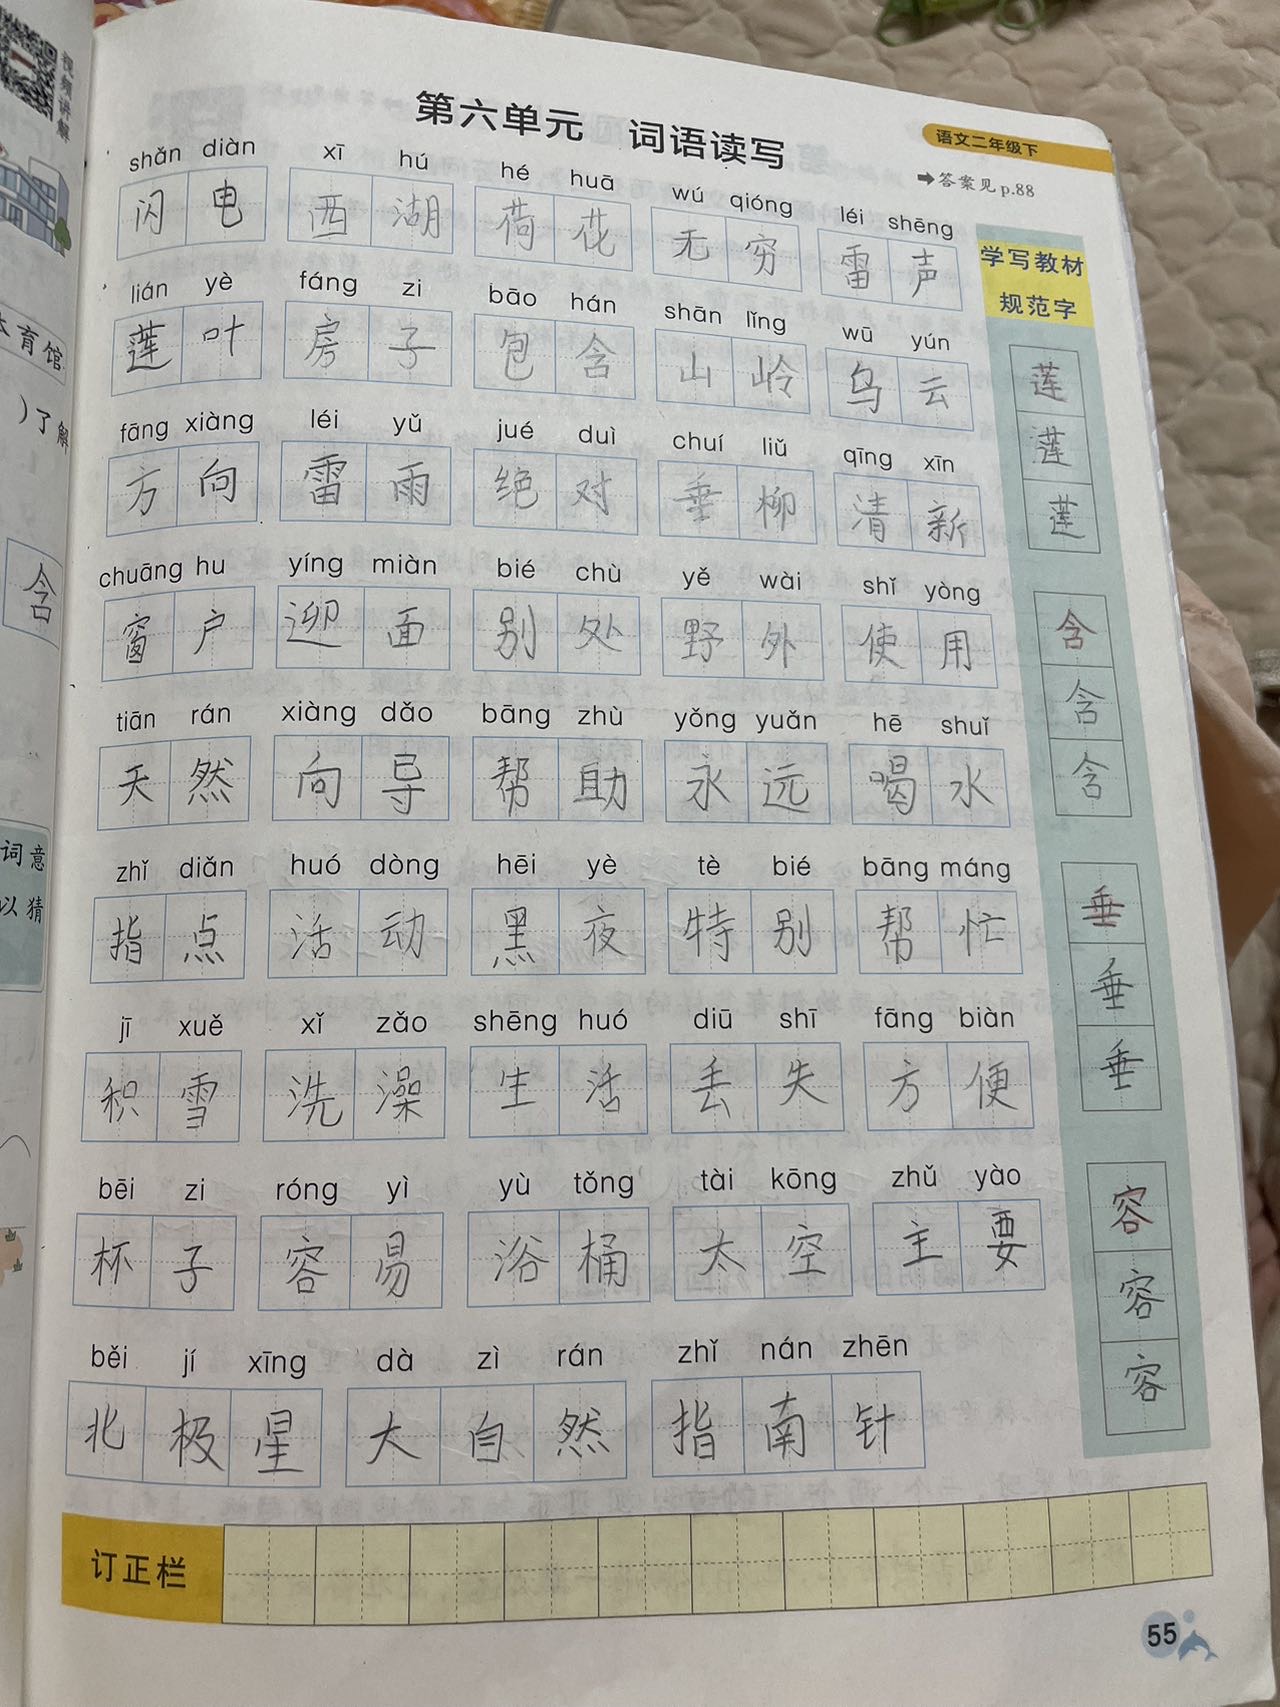 视频讲解
第六单元 词语读写
语文二年级下
➡答案见p.88
shǎn diàn xī hú hé huā wú qióng léi shēng
闪电 西湖 荷花 无穷 雷声
学写教材
规范字
lián yè fáng zi bāo hán shān lǐng wū yún
莲叶 房子 包含 山岭 乌云
体育馆
)了解
莲
莲
莲
fāng xiàng léi yǔ jué duì chuí liǔ qīng xīn
方向 雷雨 绝对 垂柳 清新
含
chuāng hu yíng miàn bié chù yě wài shǐ yòng
窗户 迎面 别处 野外 使用
含
含
含
tiān rán xiàng dǎo bāng zhù yǒng yuǎn hē shuǐ
天然 向导 帮助 永远 喝水
词意
以猜
zhǐ diǎn huó dòng hēi yè tè bié bāng máng
指点 活动 黑夜 特别 帮忙
垂
垂
垂
jī xuě xǐ zǎo shēng huó diū shī fāng biàn
积雪 洗澡 生活 丢失 方便
bēi zi róng yì yù tǒng tài kōng zhǔ yào
杯子 容易 浴桶 太空 主要
容
容
容
běi jí xīng dà zì rán zhǐ nán zhēn
北极星 大自然 指南针
订正栏
55